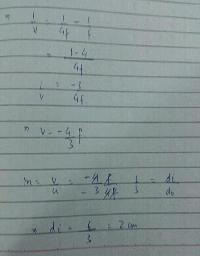 ⇒ 1/v = 1/4f - 1/f
= 1-4/4f
1/v = -3/4f
⇒ v = -4/3 f
m = v/u = -4f/-3 4f 1/3 = di/do
⇒ di = 6/3 = 2 cm